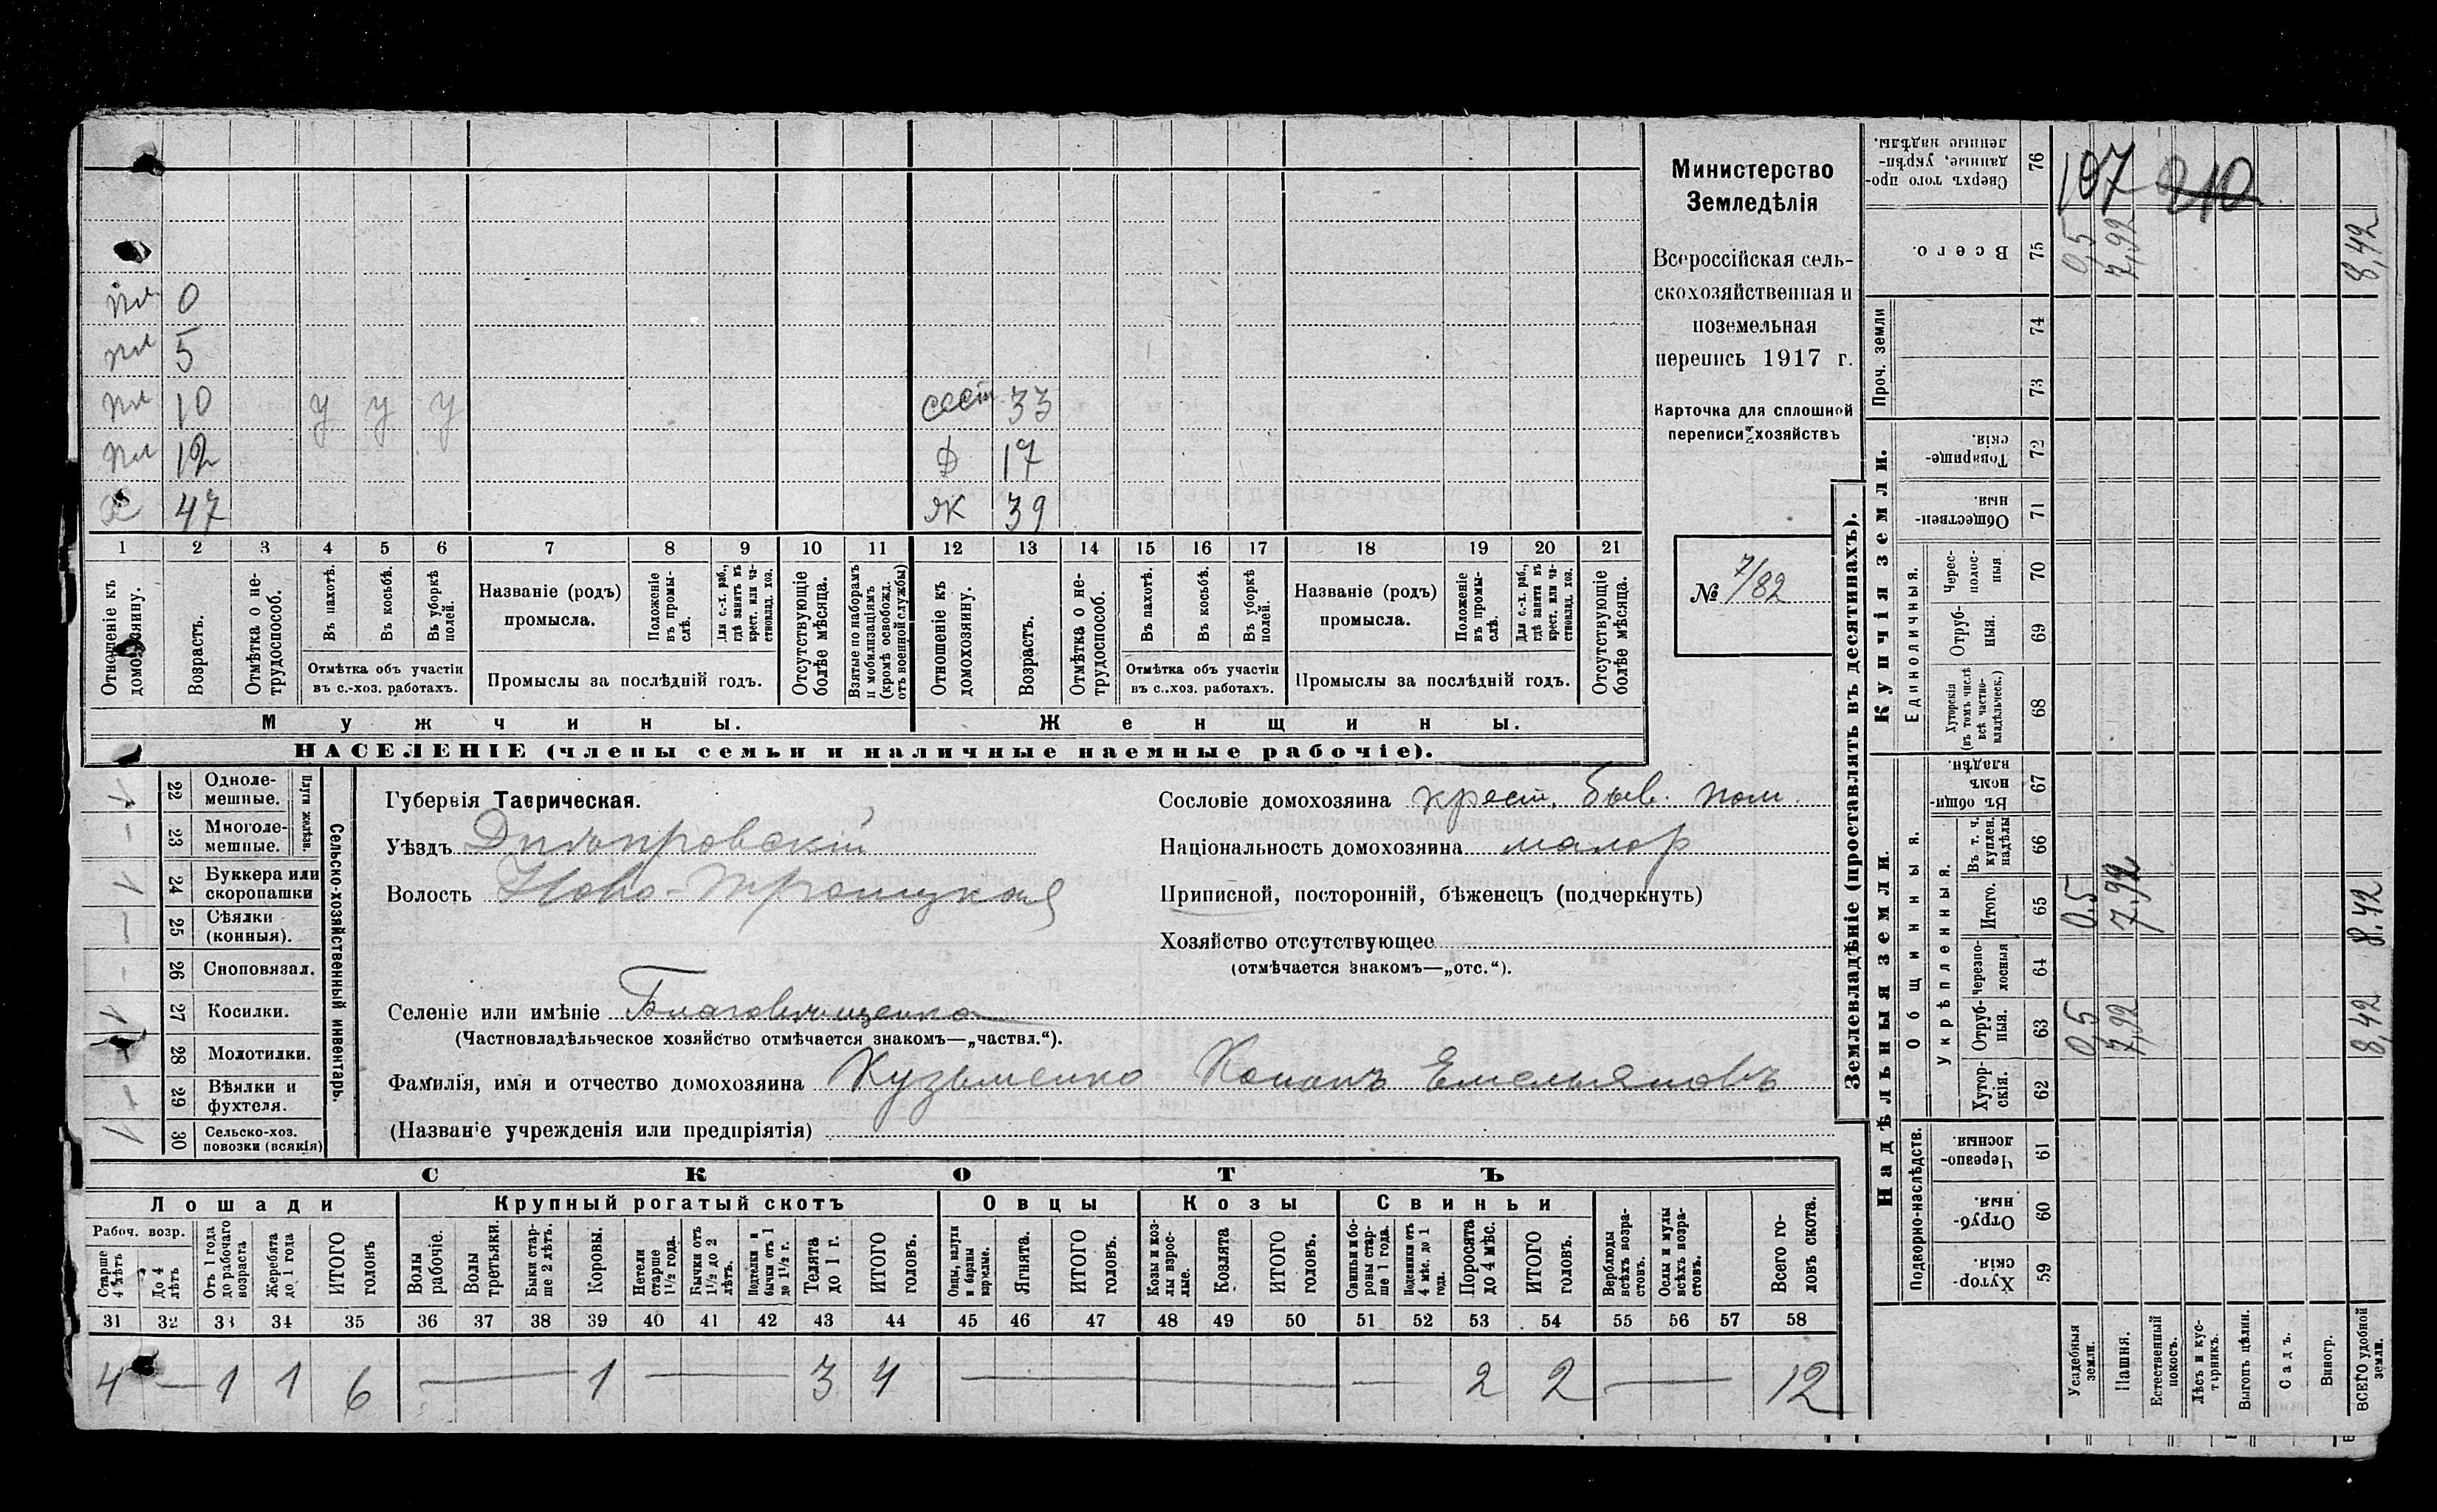 пл 0
пл 5
пл 10 у у у сест 33
пл 12 Д 17
Х 47 Ж 39
1 2 3 4 5 6 7 8 9 10 11 12 13 14 15 16 17 18 19 20 21
Отношеніе къ домохозяину.
Возрастъ.
Отмѣтка о нетрудоспособ.
Въ пахотѣ.
Въ косьбѣ.
Въ уборкѣ полей.
Отмѣтка объ участіи въ с.-хоз. работахъ.
Названіе (родъ) промысла.
Положеніе въ промыслѣ.
Для с.-х. раб., гдѣ занятъ въ крест. или частновлад. хоз.
Промыслы за послѣдній годъ.
Отсутствующіе болѣе мѣсяца.
Взятые по наборамъ и мобилизаціямъ (кромѣ освобожд. отъ военной службы)
Отношеніе къ домохозяину.
Возрастъ.
Отмѣтка о нетрудоспособ.
Въ пахотѣ.
Въ косьбѣ.
Въ уборкѣ полей.
Отмѣтка объ участіи въ с.-хоз. работахъ.
Названіе (родъ) промысла.
Положеніе въ промыслѣ.
Для с.-х. раб., гдѣ занята въ крест. или частновлад. хоз.
Промыслы за послѣдній годъ.
Отсутствующіе болѣе мѣсяца.
Мужчины. Женщины.
НАСЕЛЕНІЕ (члены семьи и наличные наемные рабочіе).
Министерство
Земледѣлія
Всероссійская сель-
скохозяйственная и
поземельная
перепись 1917 г.
Карточка для сплошной
переписи хозяйствъ
№ 7/82
Сельско-хозяйственный инвентарь.
Плуги желѣзн.
22 Одноле-мешные. 1
23 Многоле-мешные. –
24 Буккера или скоропашки 1
25 Сѣялки (конныя). –
26 Сноповязал. –
27 Косилки. 1
28 Молотилки.
29 Вѣялки и фухтеля.
30 Сельско-хоз. повозки (всякія) 1
Губернія Таврическая.
Уѣздъ Днѣпровскій
Волость Ново-Троицкая
Селеніе или имѣніе Благовѣщенка
(Частновладѣльческое хозяйство отмѣчается знакомъ—„частвл.“).
Фамилія, имя и отчество домохозяина Кузьменко Кононъ Емельяновъ
(Названіе учрежденія или предпріятія)
Сословіе домохозяина крест. быв. пом.
Національность домохозяина малор
Приписной, посторонній, бѣженецъ (подчеркнуть)
Хозяйство отсутствующее
(отмѣчается знакомъ—„отс.“).
СКОТЪ
Лошади Крупный рогатый скотъ Овцы Козы Свиньи
Рабоч. возр.
Старше 4 лѣтъ
До 4 лѣтъ
Отъ 1 года до рабочаго возраста
Жеребята до 1 года
ИТОГО головъ
Волы рабочіе.
Волы третьяки.
Быки старше 2 лѣтъ.
Коровы.
Нетели старше 1½ года.
Бычки отъ 1½ до 2 лѣтъ.
Подтелки и бычки отъ 1 до 1½ г.
Телята до 1 г.
ИТОГО головъ.
Овцы, валухи и бараны взрослые.
Ягнята.
ИТОГО головъ.
Козы и козлы взрослые.
Козлята
ИТОГО головъ.
Свиньи и боровы старше 1 года.
Подсвинки отъ 4 мѣс. до 1 года.
Поросята до 4 мѣс.
ИТОГО головъ.
Верблюды всѣхъ возрастовъ.
Ослы и мулы всѣхъ возрастовъ.
Всего головъ скота.
31 32 33 34 35 36 37 38 39 40 41 42 43 44 45 46 47 48 49 50 51 52 53 54 55 56 57 58
4 — 1 1 6 — 1 — 3 4 — — 2 2 — 12
Землевладѣніе (проставлять въ десятинахъ).
Купчія земли.
Надѣльныя земли.
Сверхъ того проданные, укрѣпленные надѣлы. 76
107 210
Всего. 75 0,5 7,92 8,42
Проч. земли 74
73
Товарищескія. 72
Общественныя. 71
Единоличныя.
Чересполосныя 70
Отрубныя. 69
Хуторскія (въ томъ числѣ всѣ частновладѣльческ.) 68
Въ общинномъ владѣн. 67
Общинныя.
Укрѣпленныя.
Въ т. ч. куплен. надѣлы 66
Итого. 65 0,5 7,92 8.42
Черезполосныя 64
Отрубныя. 63 0,5 7,92 8,42
Хуторскія. 62
Подворно-наслѣдств.
Черезполосныя. 61
Отрубныя. 60
Хуторскія 59
Усадебныя земли.
Пашня.
Естественный покосъ.
Лѣсъ и кустарникъ.
Выгонъ цѣлин.
Садъ.
Виногр.
ВСЕГО удобной земли.